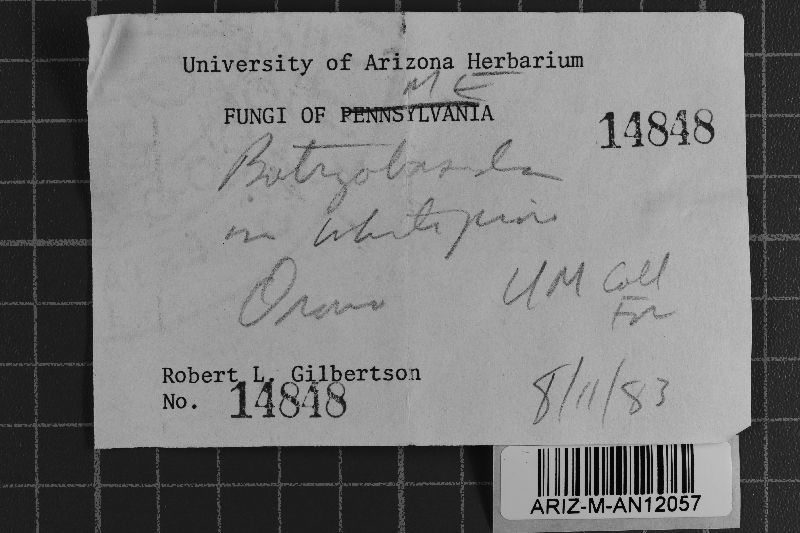 University of Arizona Herbarium
ME
FUNGI OF PENNSYLVANIA
14848
Botryobasidium
on white pine
Orono UM Coll
For
Robert L. Gilbertson
No. 14848
8/11/83
ARIZ-M-AN12057